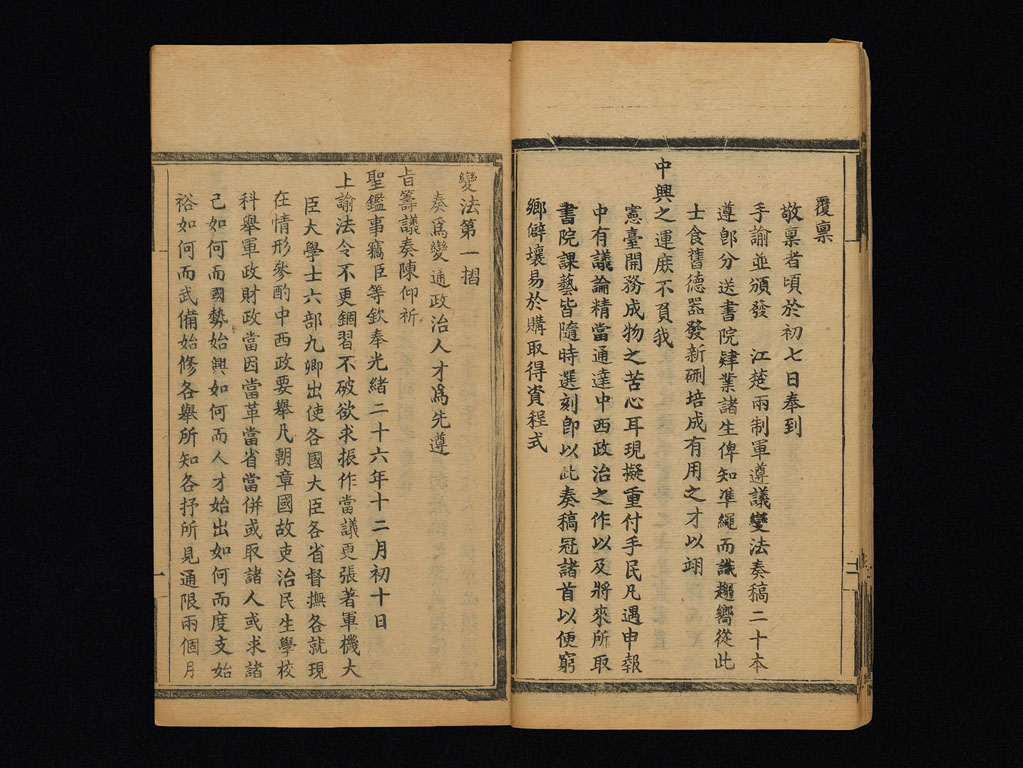 覆稟
敬稟者頃於初七日奉到
手諭並頒發　江楚兩制軍遵議變法奏稿二十本
遵卽分送書院肄業諸生俾知準繩而識趨嚮從此
士食舊德器發新硎培成有用之才以翊
中興之運庶不負我
憲臺開務成物之苦心耳現擬重付手民凡遇申報
中有議論精當通達中西政治之作以及將來所取
書院課藝皆隨時選刻卽以此奏稿冠諸首以便窮
鄉僻壤易於購取得資程式
變法第一摺
奏爲變通政治人才爲先遵
旨籌議奏陳仰祈
聖鑑事竊臣等欽奉光緒二十六年十二月初十日
上諭法令不更錮習不破欲求振作當議更張著軍機大
臣大學士六部九卿出使各國大臣各省督撫各就現
在情形參酌中西政要舉凡朝章國故吏治民生學校
科舉軍政財政當因當革當省當併或取諸人或求諸
己如何而國勢始興如何而人才始出如何而度支始
裕如何而武備始修各舉所知各抒所見通限兩個月